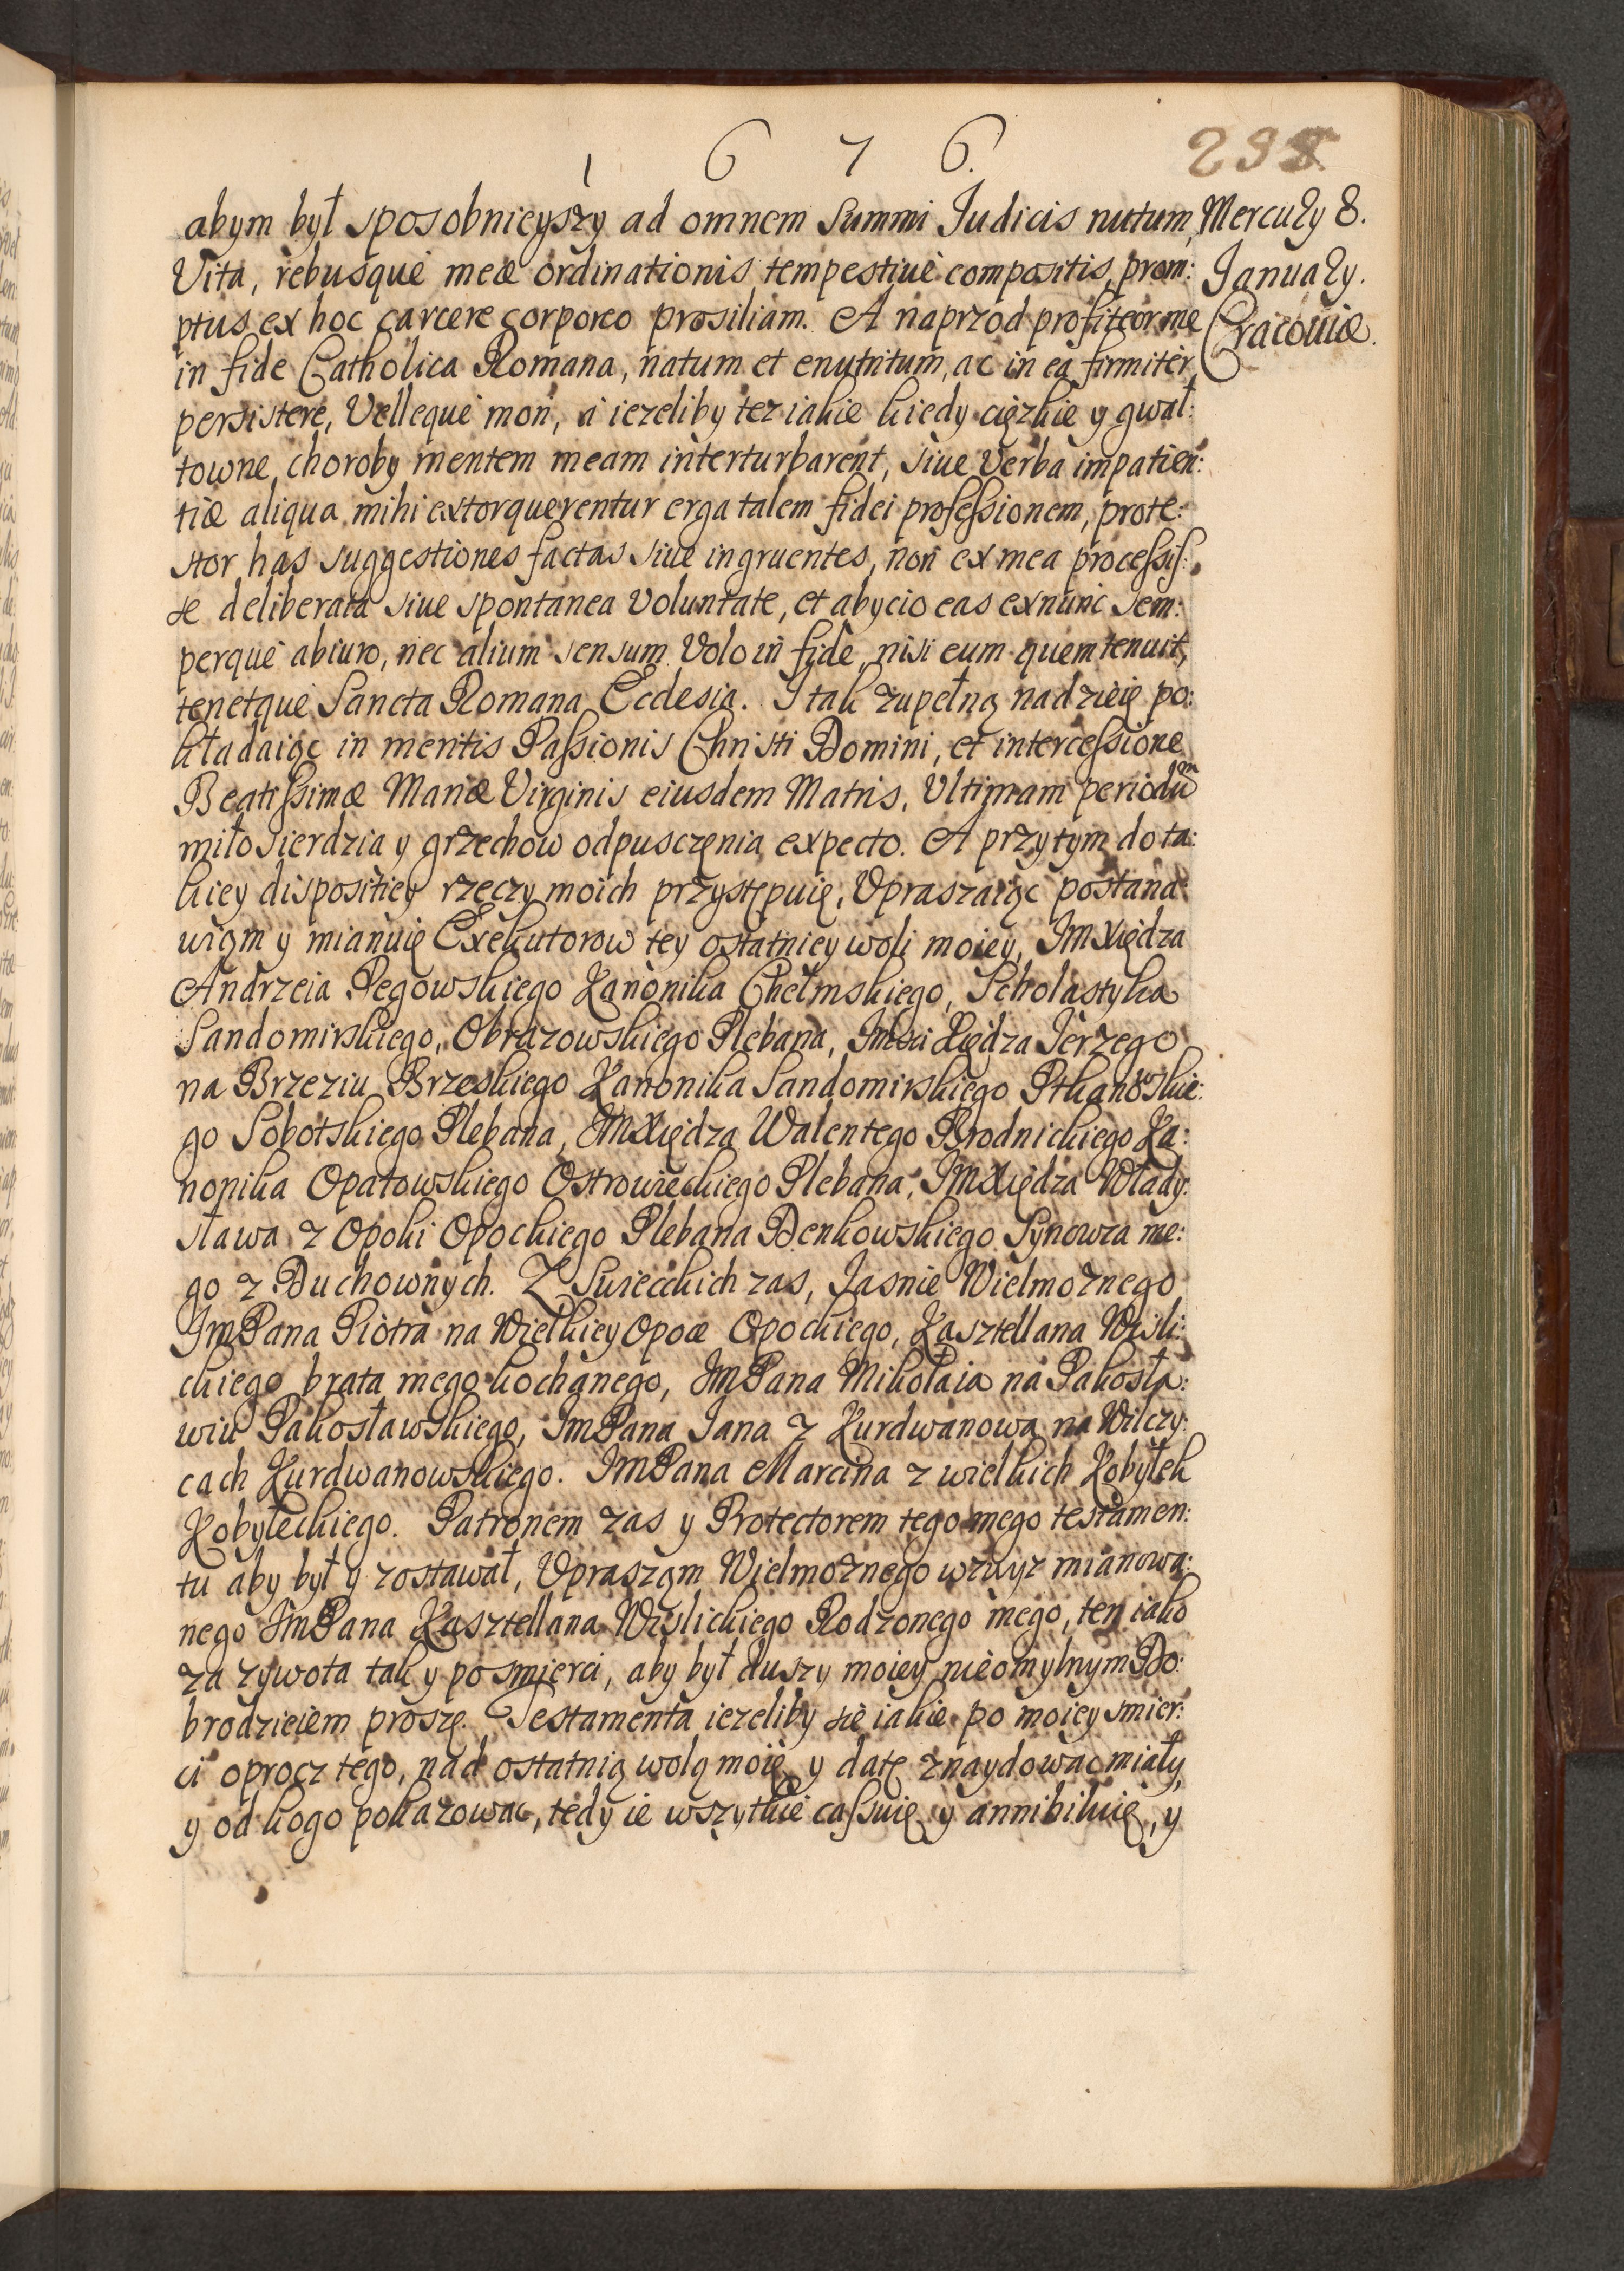 1 6 7 6.
235
Mercurÿ 8.
Januarÿ.
Cracouiæ.
abym był sposobnieyszy ad omnem Summi Judicis nutum,
Vita, rebusque meæ ordinationis tempestiue compositis, prom:
ptus ex hoc carcere corporeo prosiliam. A naprzod profiteor me
in fide Catholica Romana, natum et enutritum, ac in ea firmiter
persistere, Velleque mori, a iezeliby tez iakie kiedy cięzkie y gwał:
towne choroby mentem meam interturbarent, siue Verba impatien:
tiæ aliqua mihi extorquerentur erga talem fidei professionem, prote:
stor has suggestiones factas siue ingruentes, non ex mea processis:
se deliberata siue spontanea Voluntate, et abycio eas ex nunc sem:
perque abiuro, nec alium sensum Volo in fide, nisi eum quem tenuit,
tenetque Sancta Romana Ecclesia. I tak zupełną nadzieię po:
kładaiąc in meritis Passionis Christi Domini, et intercessione
Beatissimæ Mariæ Virginis eiusdem Matris, Ultimam periodum
miłosierdzia y grzechow odpusczenia expecto. A przytym do ta:
kiey dispositiey rzeczy moich przystępuię, Upraszaiąc postana:
wiąm y mianuię Exekutorow tey ostatniey woli moiey, JmXiędza
Andrzeia Pegowskiego Kanonika Chełmskiego, Scholastyka
Sandomirskiego, Obrazowskiego Plebana, Jmści Xiędza Jerzego
na Brzeziu Brzeskiego Kanonika Sandomirskiego Ptkanowskie:
go Sobotskiego Plebana, JmXiędza Walentego Brodnickiego Ka:
nonika Opatowskiego Ostrowieckiego Plebana, JmXiędza Włady:
sława z Opoki Opockiego Plebana Denkowskiego Synowca me:
go z Duchownych. Z Swieckich zas, Jasnie Wielmoznego
JmPana Piotra na Wielkiey Opoce Opockiego, Kasztellana Wisli:
ckiego brata mego kochanego, JmPana Mikołaia na Pakosła:
wiu Pakosławskiego, JmPana Jana z Kurdwanowa na Wilczy:
cach Kurdwanowskiego. JmPana Marcina z wielkich Kobyłek
Kobyłeckiego. Patronem zas y Protectorem tego mego testamen:
tu aby był y zostawał, Uprasząm Wielmoznego wzwyz mianowa:
nego JmPana Kasztellana Wislickiego Rodzonego mego, ten iako
za zywota tak y po smierci, aby był duszy moiey nieomylnym Do:
brodzieiem proszę. Testamenta iezeliby się iakie po moiey smier:
ci oprocz tego, nad ostatnią wolą moię y datę znaydowac miały,
y od kogo pokazowac, tedy ie wszytkie cassuię y annihiluię, y